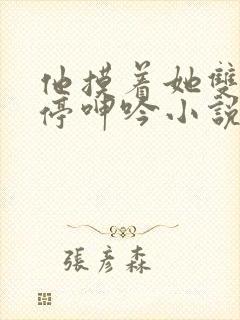 他摸着她雙
停呻吟小說
張彥森